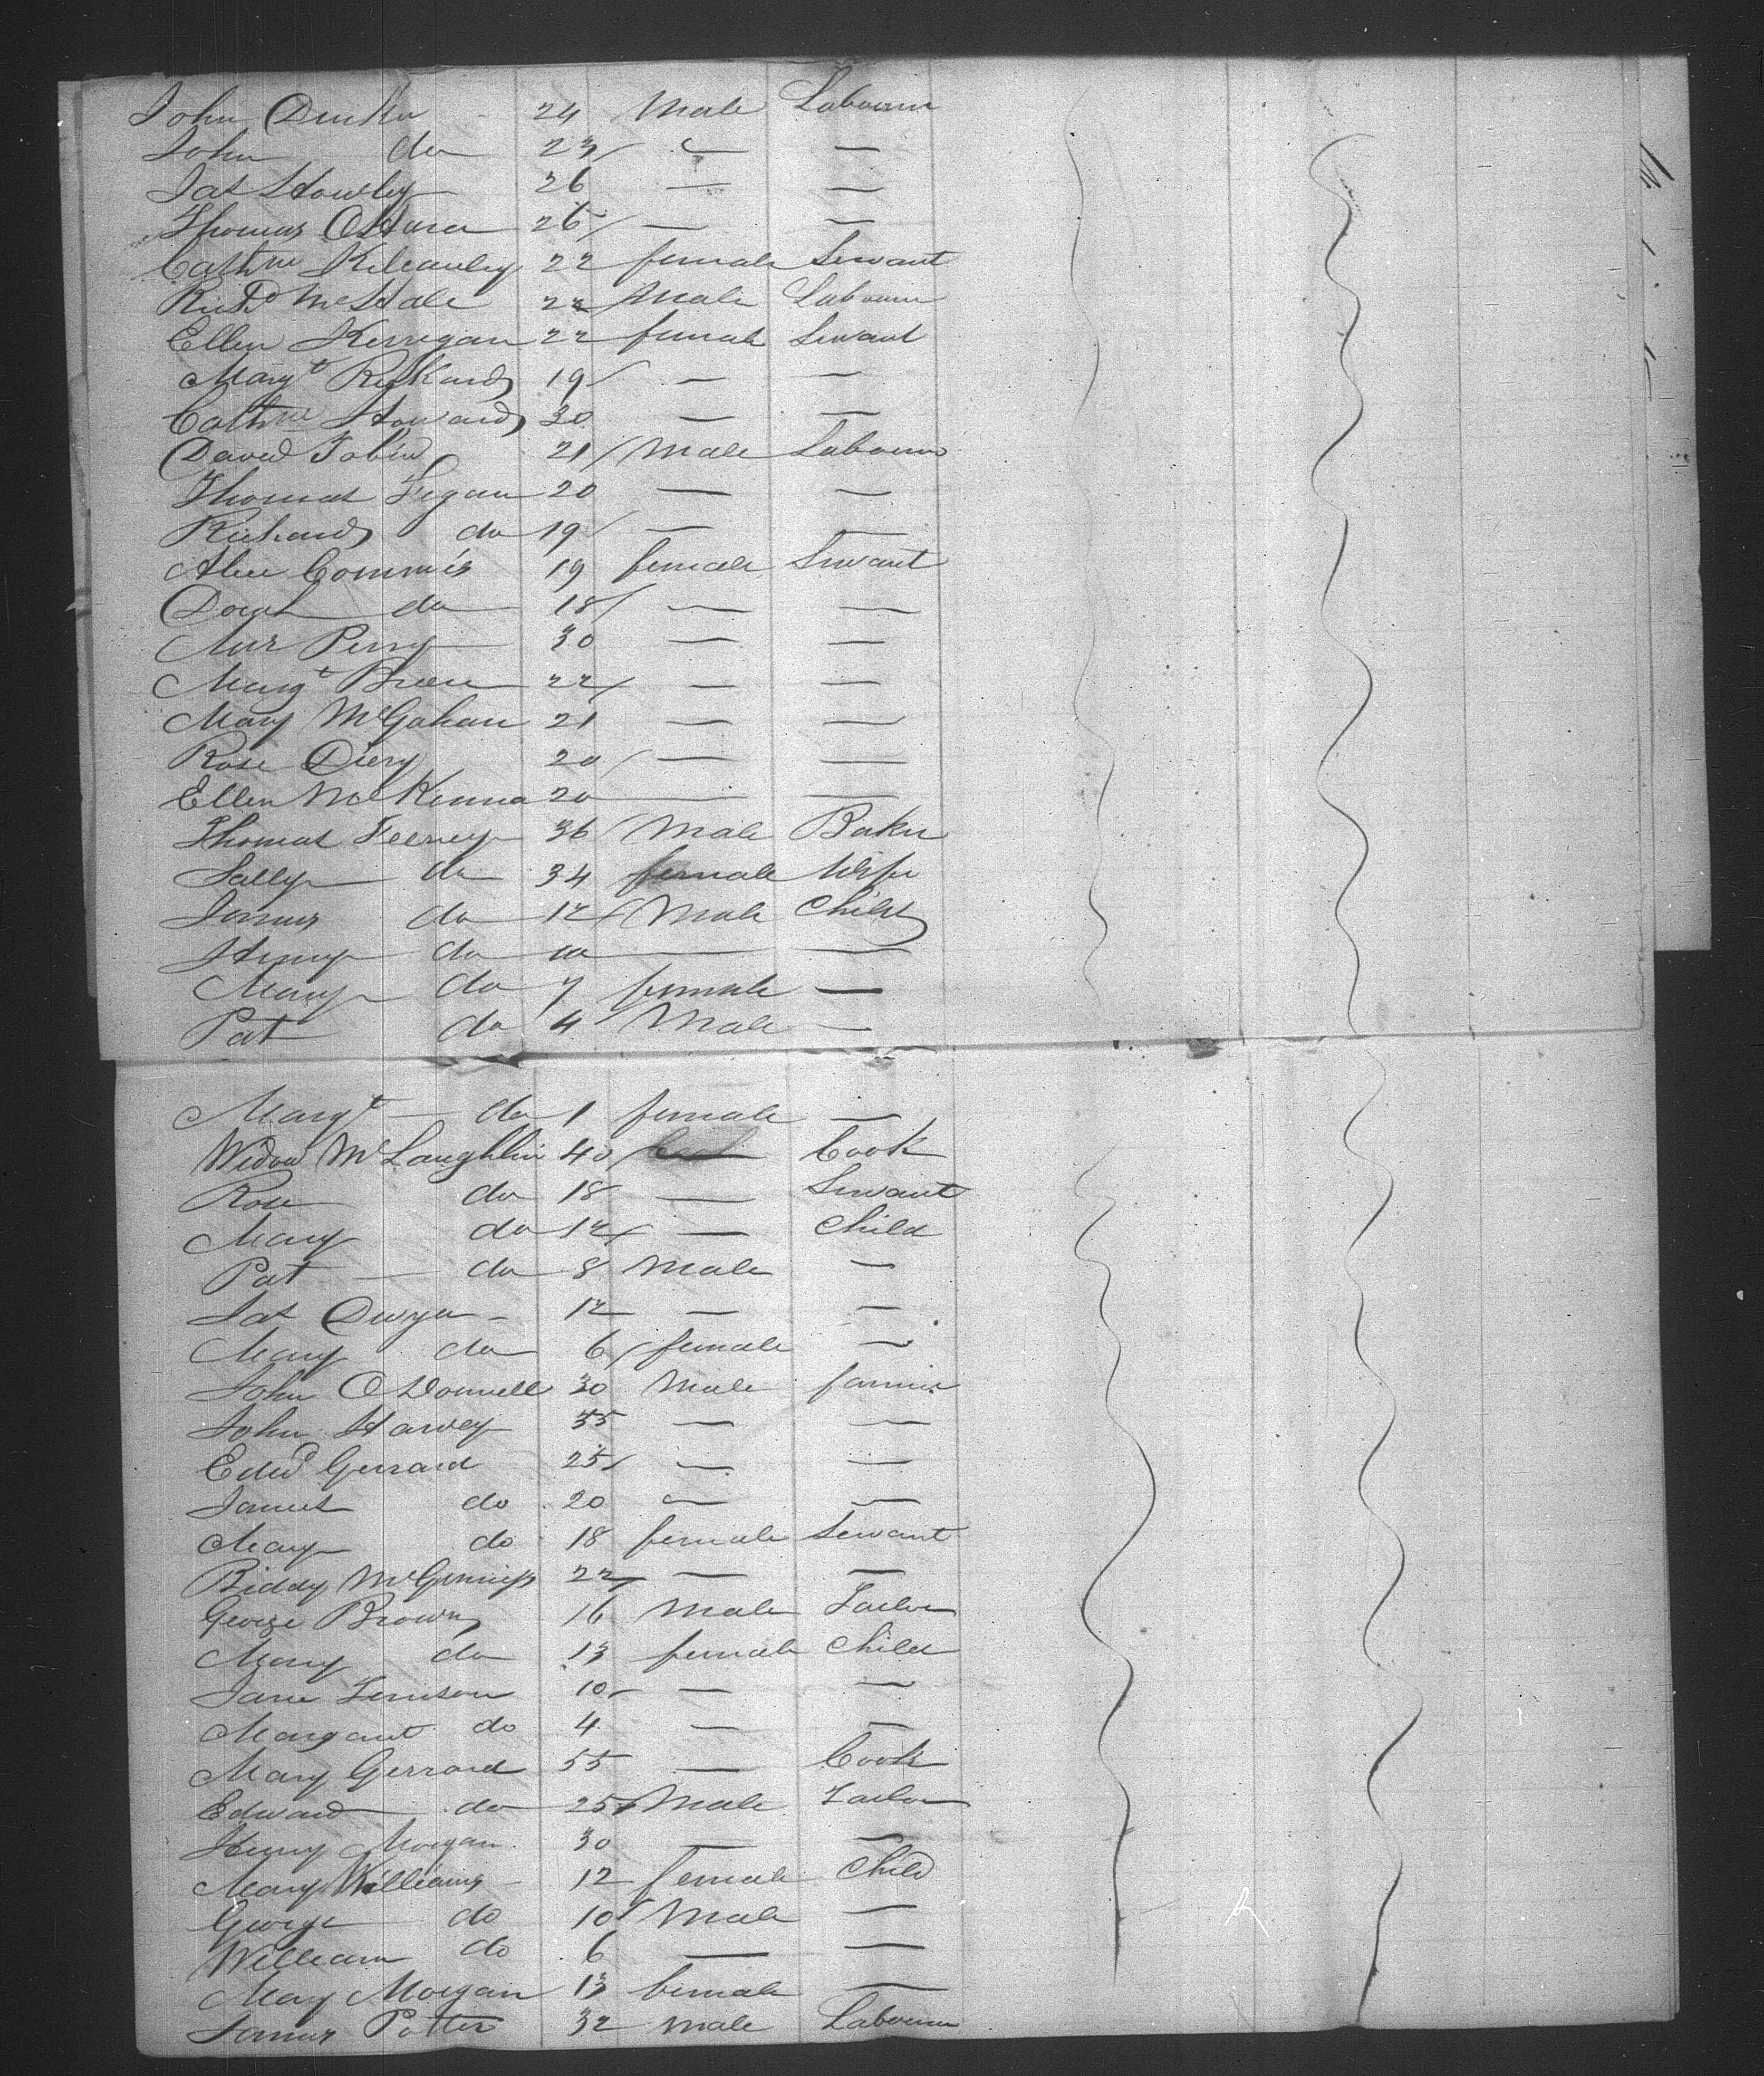 John Durkin 24 Male Labourer
John do 23 — —
Jas Howley 26 — —
Thomas OHara 26 — —
Cathne Kilcauley 22 female Servant
Richd McHale 22 Male Labourer
Ellen Kerrigan 22 female Servant
Margt Rickard 19 — —
Cathne Howard 30 — —
David Tobin 21 Male Labourer
Thomas Fegan 20 — —
Richard do 19 — —
Alice Commis 19 female Servant
do 18 — —
Mrs Perry 30 — —
Margt Breen 22 — —
Mary McGahan 21 — —
Rose 20 — —
Ellen McKenna 20 — —
Thomas Feeney 36 Male Baker
Sally do 34 female Wife
James do 12 Male Child
Henry do 10 — —
Mary do 7 female —
Pat do 4 Male —
Margt do 1 female —
Widow McLaughlin 40 Cook
Rose do 18 — Servant
Mary do 12 — Child
Pat do 8 Male —
Jas Dwyer 12 — —
Mary do 6 female —
John ODonnell 30 Male farmer
John Harvey 35 — —
Edwd Gerrard 25 — —
James do 20 — —
Mary do 18 female Servant
Biddy McGinniss 22 — —
George Brown 16 Male Tailor
Mary do 13 female Child
Jane Tenison 10 — —
Margaret do 4 — —
Mary Gerrard 55 — Cook
Edward do 25 Male Tailor
Henry Morgan 30 — —
Mary Williams 12 female Child
George do 10 Male —
William do 6 — —
Mary Morgan 13 female —
James Potter 32 male Labourer